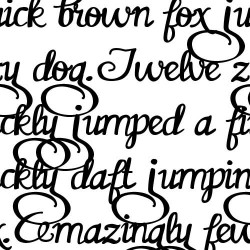 uick brown fox ju
zy dog. Twelve z
ckly jumped a fi
ckly daft jumpin
x. Amazingly few